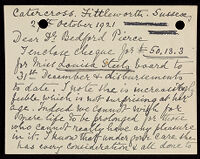 Catercross, Fittleworth, Sussex,
2nd October 1921
Dear Dr. Bedford Pierce
I enclose cheque for £50.13.3
for Miss Louisa Steel's board to
31st December & disbursements
to date. I note she is increasingly
feeble which is not surprising at her
age. Indeed we cannot wish for
mere life to be prolonged for those
who cannot really have any pleasure
in it. I know that under your care she
has every consideration & all done to